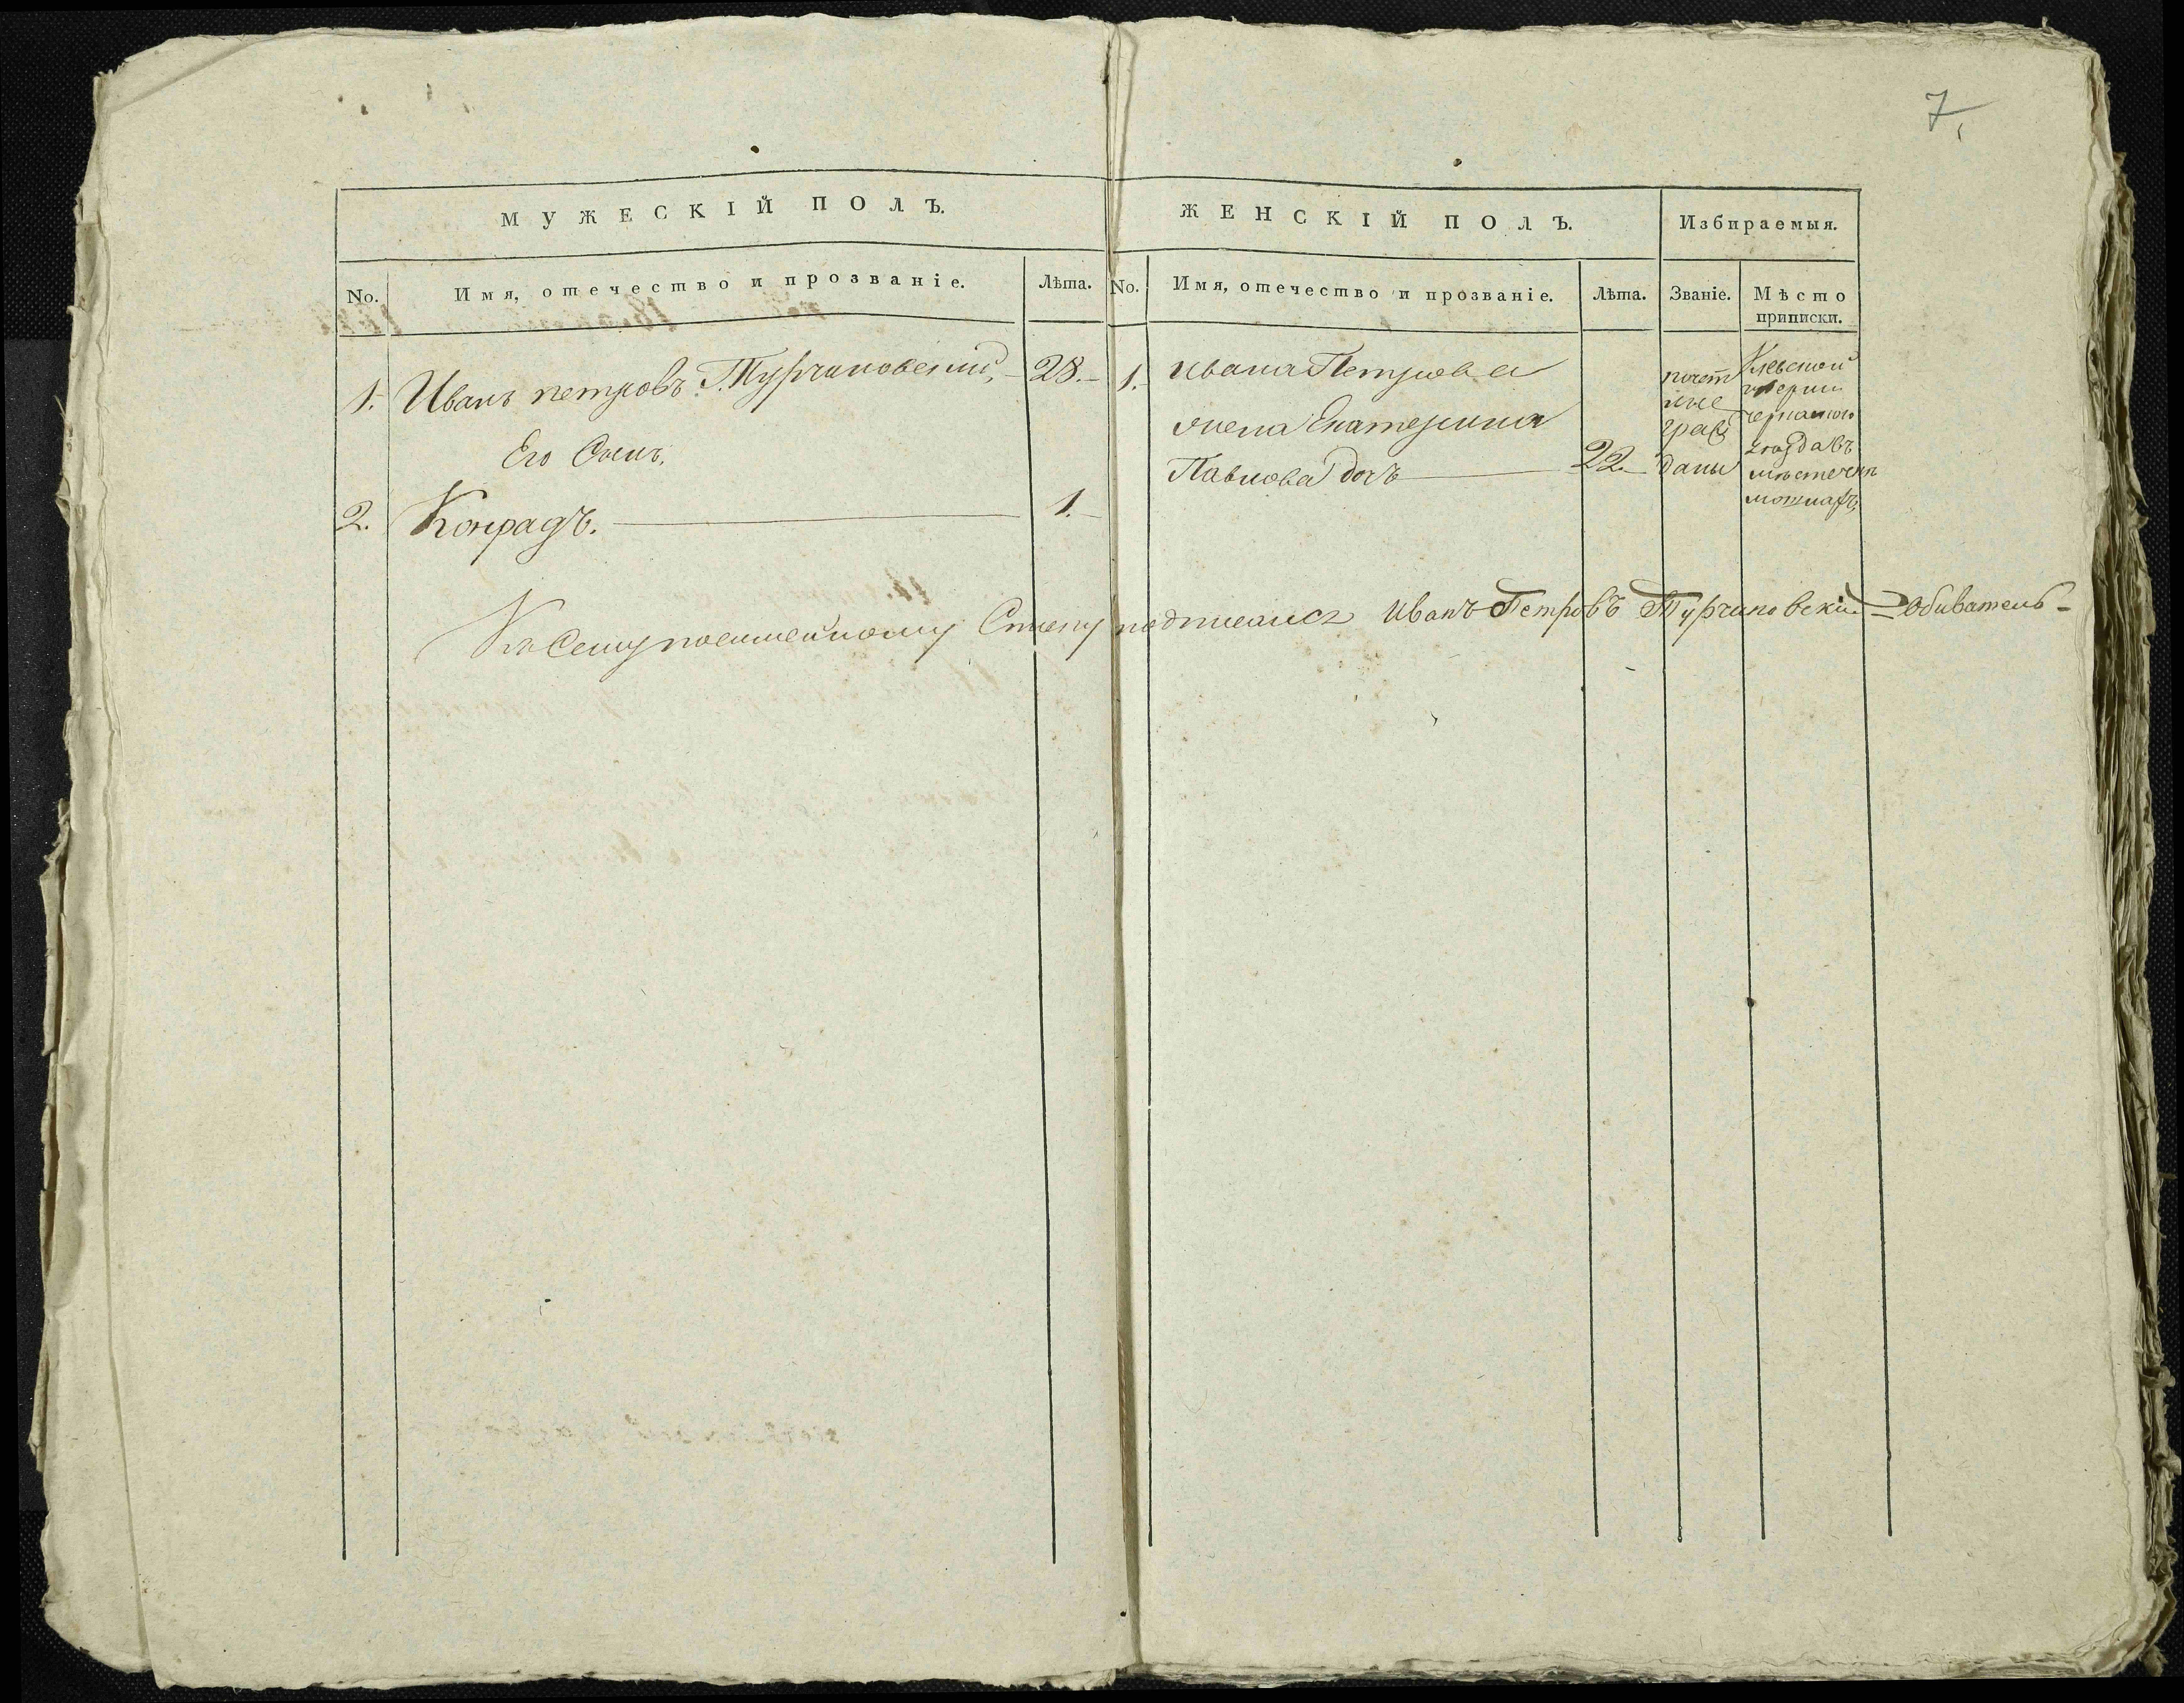 7
МУЖЕСКІЙ ПОЛЪ.
ЖЕНСКІЙ ПОЛЪ.
Избираемыя.
No.
Имя, отечество и прозваніе.
Лѣта.
No.
Имя, отечество и прозваніе.
Лѣта.
Званіе.
Мѣсто
приписки.
1. Иванъ петровъ Турчиновский, 28.
Его Сынъ,
2. Конрадъ. 1.
1. Ивана Петрова
жена Екатерина
Павлова дочь 22.
почет
ные
граж
даны
Киевской
губерни
черкаского
уезда въ
мѣстечкѣ
мошнахъ
Ксему посемейному Списку подписался Иванъ Петровъ Турчиновскій Обиватель